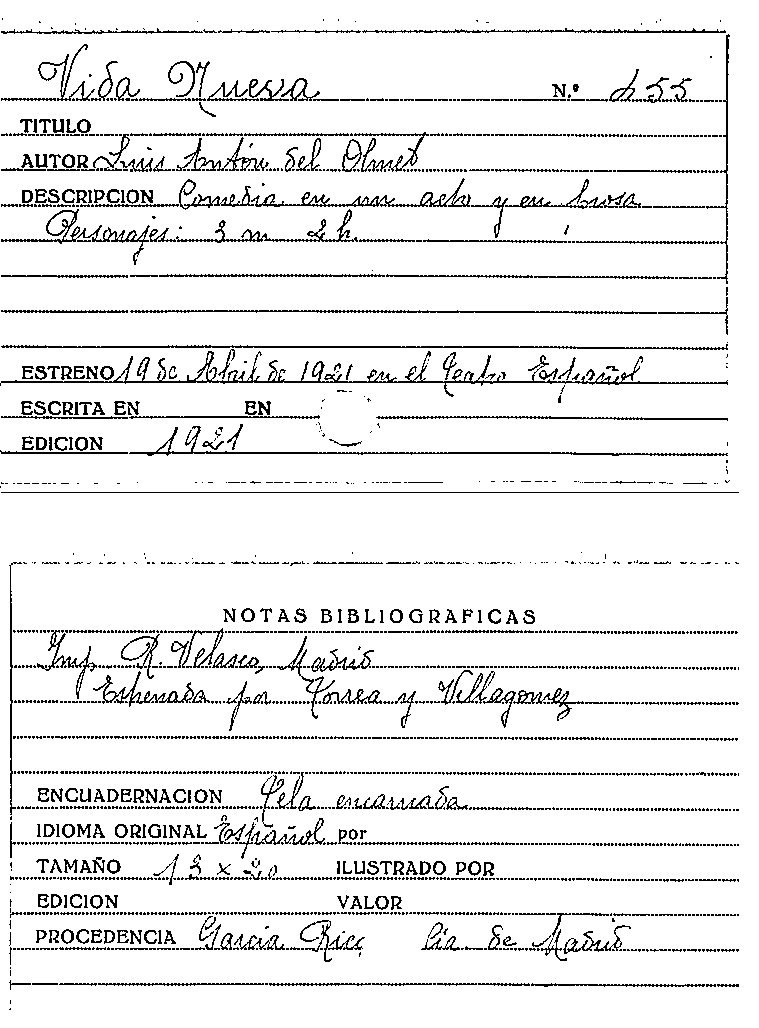 Vida Nueva N.º 455
TITULO
AUTOR Luis Antón del Olmet
DESCRIPCION Comedia en un acto y en prosa
Personajes: 3 m 2 h.
ESTRENO 19 de Abril de 1921 en el Teatro Español
ESCRITA EN EN
EDICION 1921
NOTAS BIBLIOGRAFICAS
Imp. R. Velasco, Madrid
Estrenada por Correa y Villagomez
ENCUADERNACION Tela encarnada
IDIOMA ORIGINAL Español por
TAMAÑO 13 x 20 ILUSTRADO POR
EDICION VALOR
PROCEDENCIA García Rico Cia. de Madrid